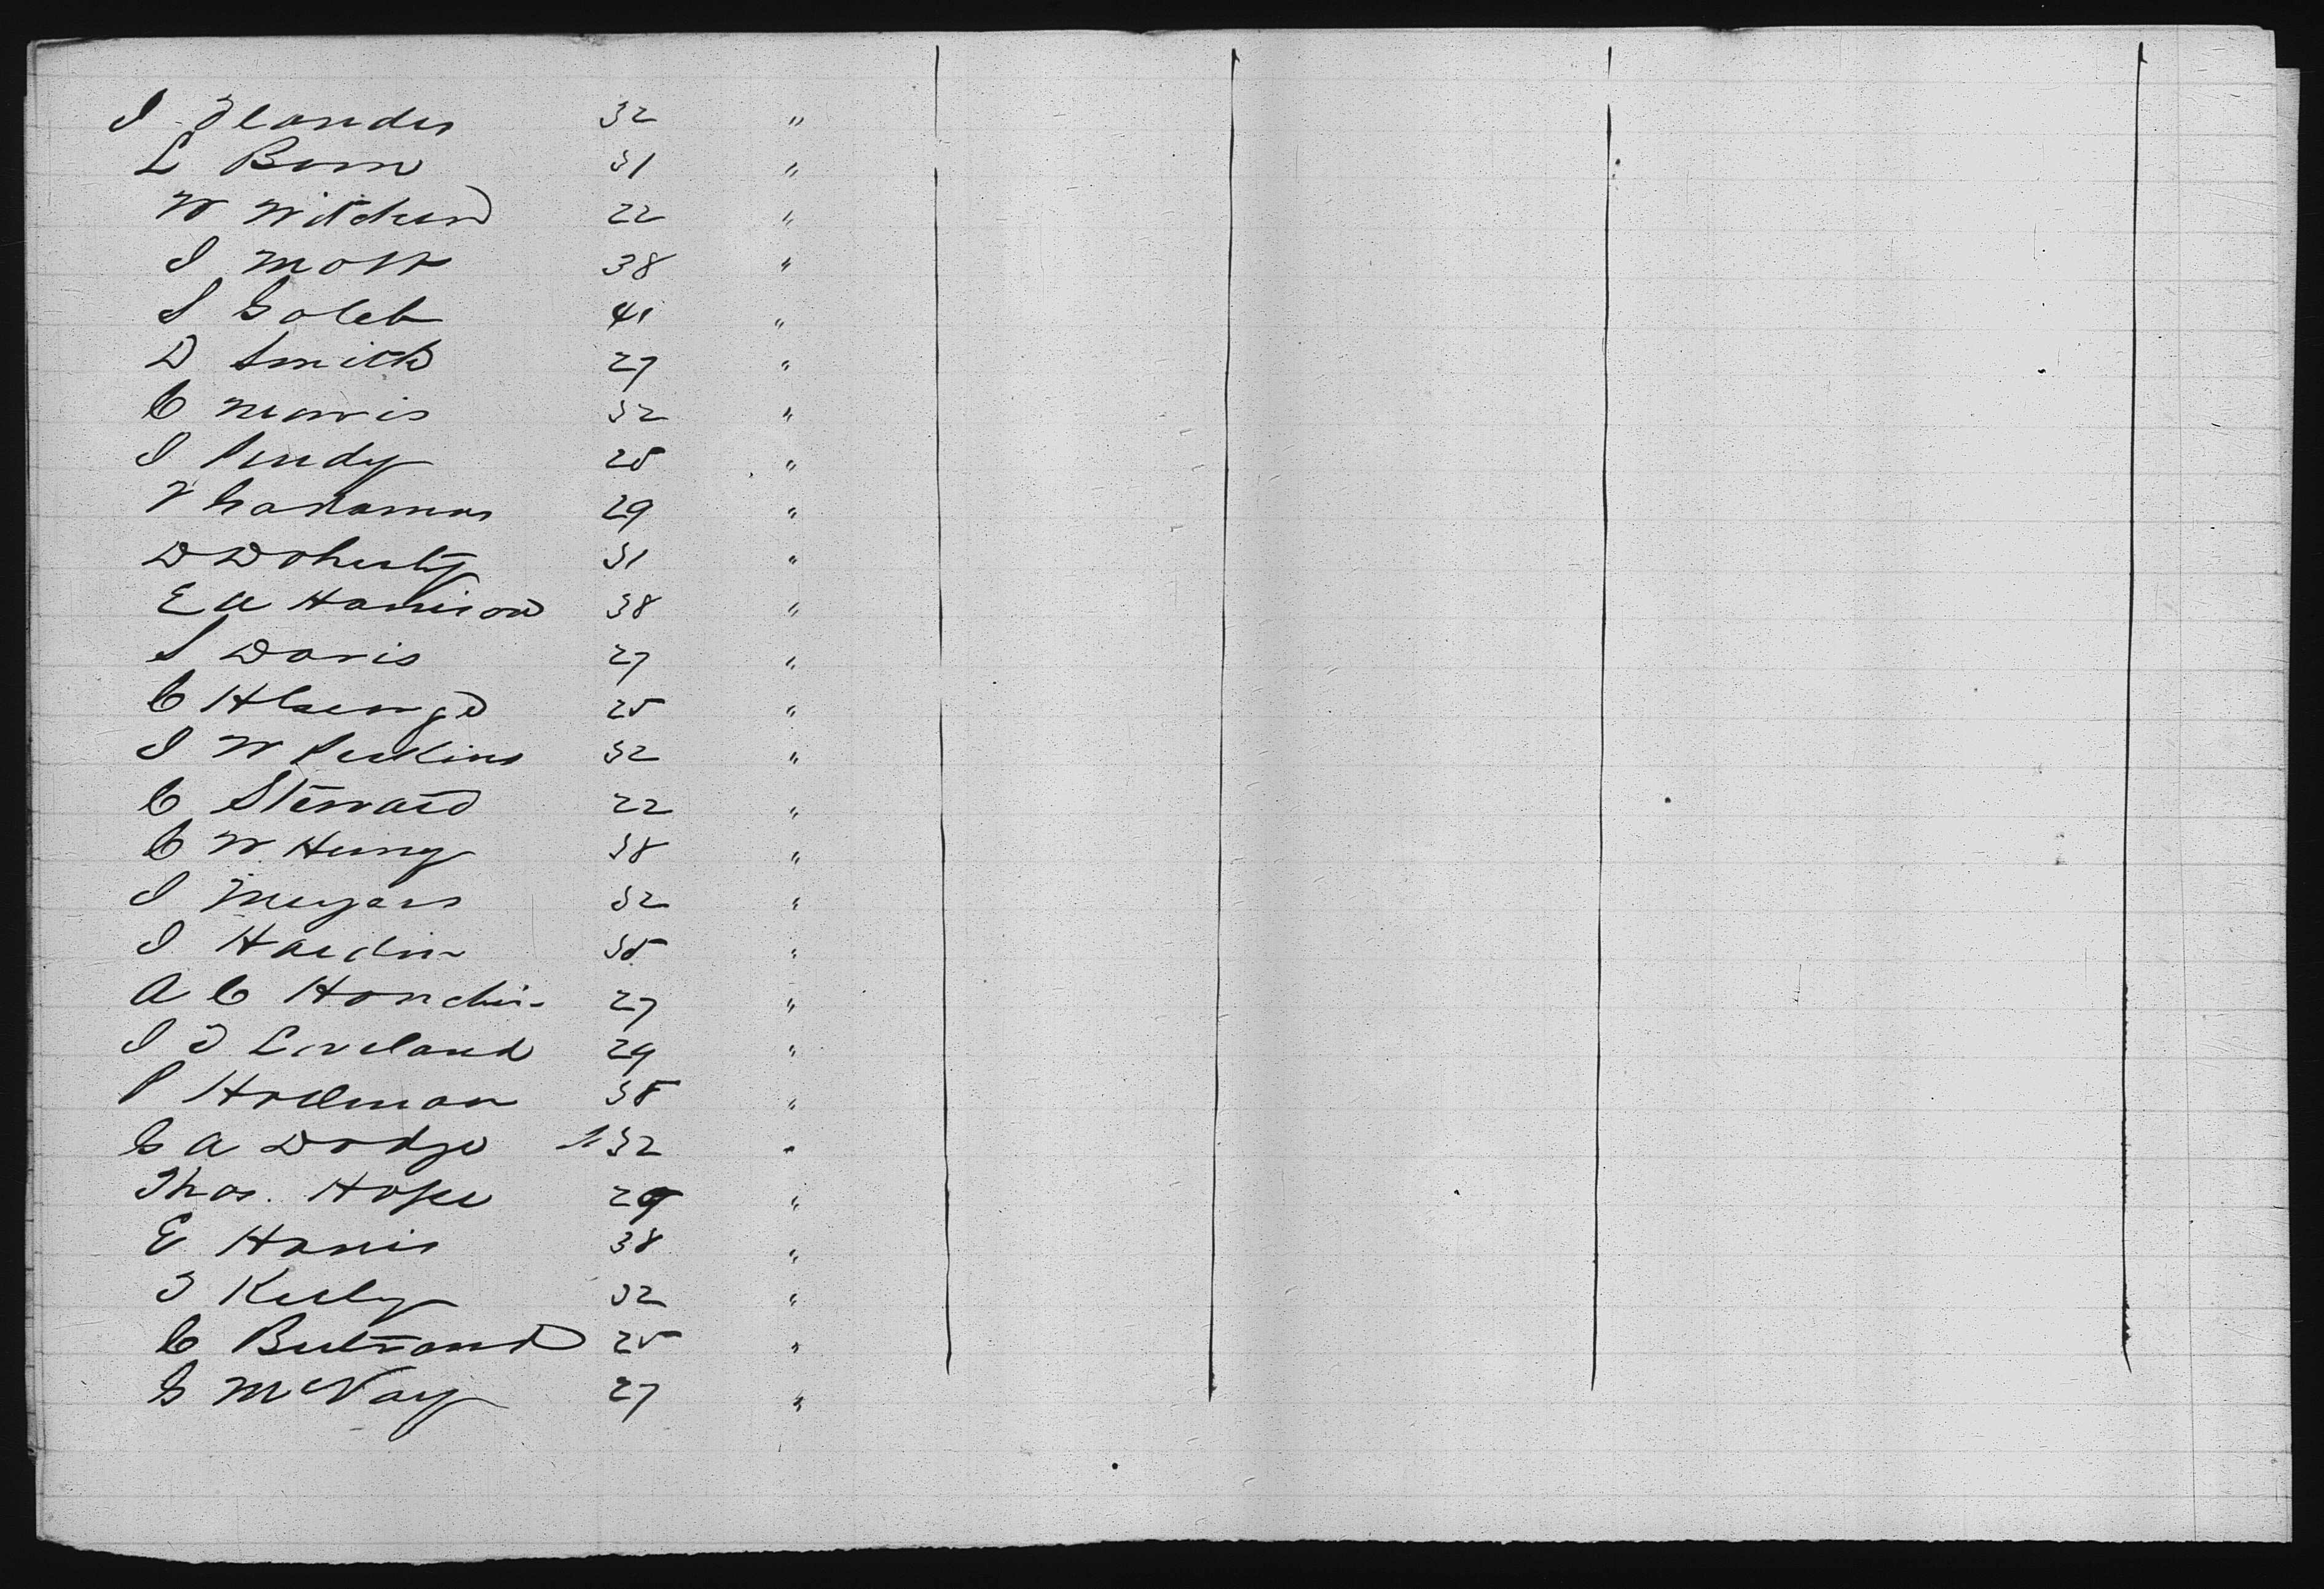 J Flanders 32 "
L Born 31 "
W 22 "
J Mott 38 "
S Goleb 41 "
D Smith 27 "
C Morris 32 "
J Purdy 28 "
29 "
D Doherty 31 "
E A Harrison 38 "
S Davis 27 "
C 25 "
J W Perkins 32 "
C Steward 22 "
C W Henry 38 "
J Meyers 32 "
J Hardin 35 "
A C 27 "
J T Loveland 29 "
P Hollman 38 "
G A Dodge 32 "
Thos. Hope 29 "
E Harris 38 "
T Kerby 32 "
C Bertrand 25 "
G McVay 27 "